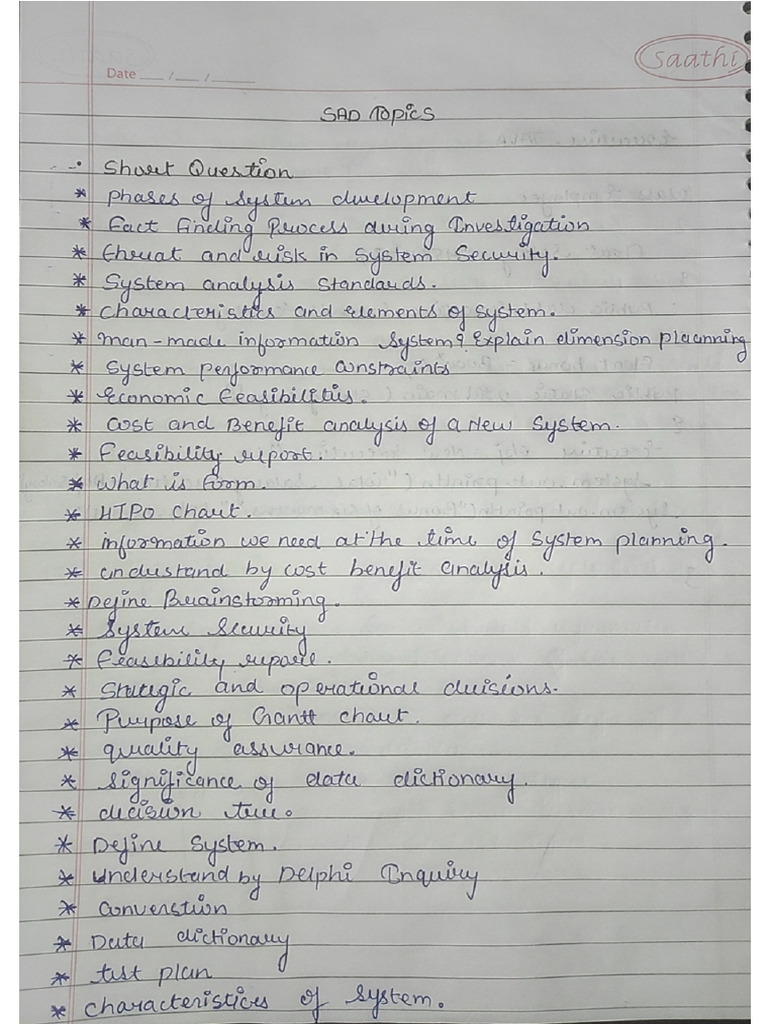 Saathi
Date ___/___/_____
SAD Topics
Short Question
* phases of system development
* Fact Finding Process during Investigation
* threat and risk in System Security.
* System analysis Standards.
* characteristics and elements of system.
* man-made information system? Explain dimension planning
* System performance constraints
* Economic feasibilities.
* Cost and Benefit analysis of a New System.
* Feasibility report.
* What is form.
* HIPO Chart.
* information we need at the time of System planning.
* understand by cost benefit analysis.
* Define Brainstorming.
* System Security
* Feasibility report.
* Strategic and operational decisions.
* Purpose of Gantt chart.
* quality assurance.
* Significance of data dictionary.
* decision tree.
* Define System.
* understand by Delphi Inquiry
* Conversion
* Data dictionary
* test plan
* characteristics of System.